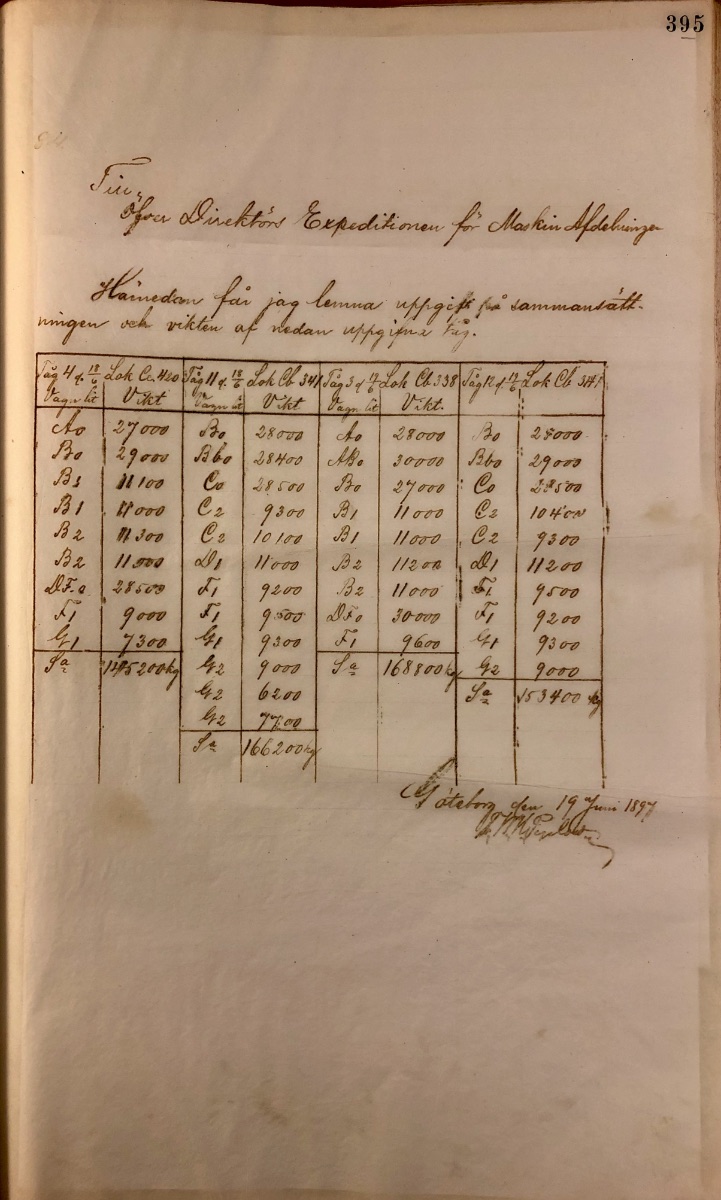 395
Till
Öfver Direktörs Expeditionen för Maskin Afdelningen
Härnedan får jag lemna uppgift på sammansätt-
ningen och vikten af nedan uppgifna tåg.
Tåg 4 d. 18/6 Lok Cc. 420 Tåg 11 d. 18/6 Lok Cb 341 Tåg 3 d 19/6 Lok Cb 338 Tåg 12 d 19/6 Lok Cb 341
Vagn lit Vikt Vagn lit Vikt Vagn lit Vikt.
Ao 27000 Bo 28000 Ao 28000 Bo 28000
Bo 29000 Bbo 28400 ABo 30000 Bbo 29000
B1 11100 Co 28500 Bo 27000 Co 28500
B1 11000 C2 9300 B1 11000 C2 10400
B2 11300 C2 10100 B1 11000 C2 9300
B2 11000 D1 11000 B2 11200 D1 11200
DFo 28500 F1 9200 B2 11000 F1 9500
F1 9000 F1 9500 DFo 30000 F1 9200
G1 7300 G1 9300 F1 9600 G1 9300
Sa 165200 kg G2 9000 Sa 168800 kg G2 9000
G2 6200 Sa 153400 kg
G2 7700
Sa 166200 kg
Göteborg den 19 Juni 1897